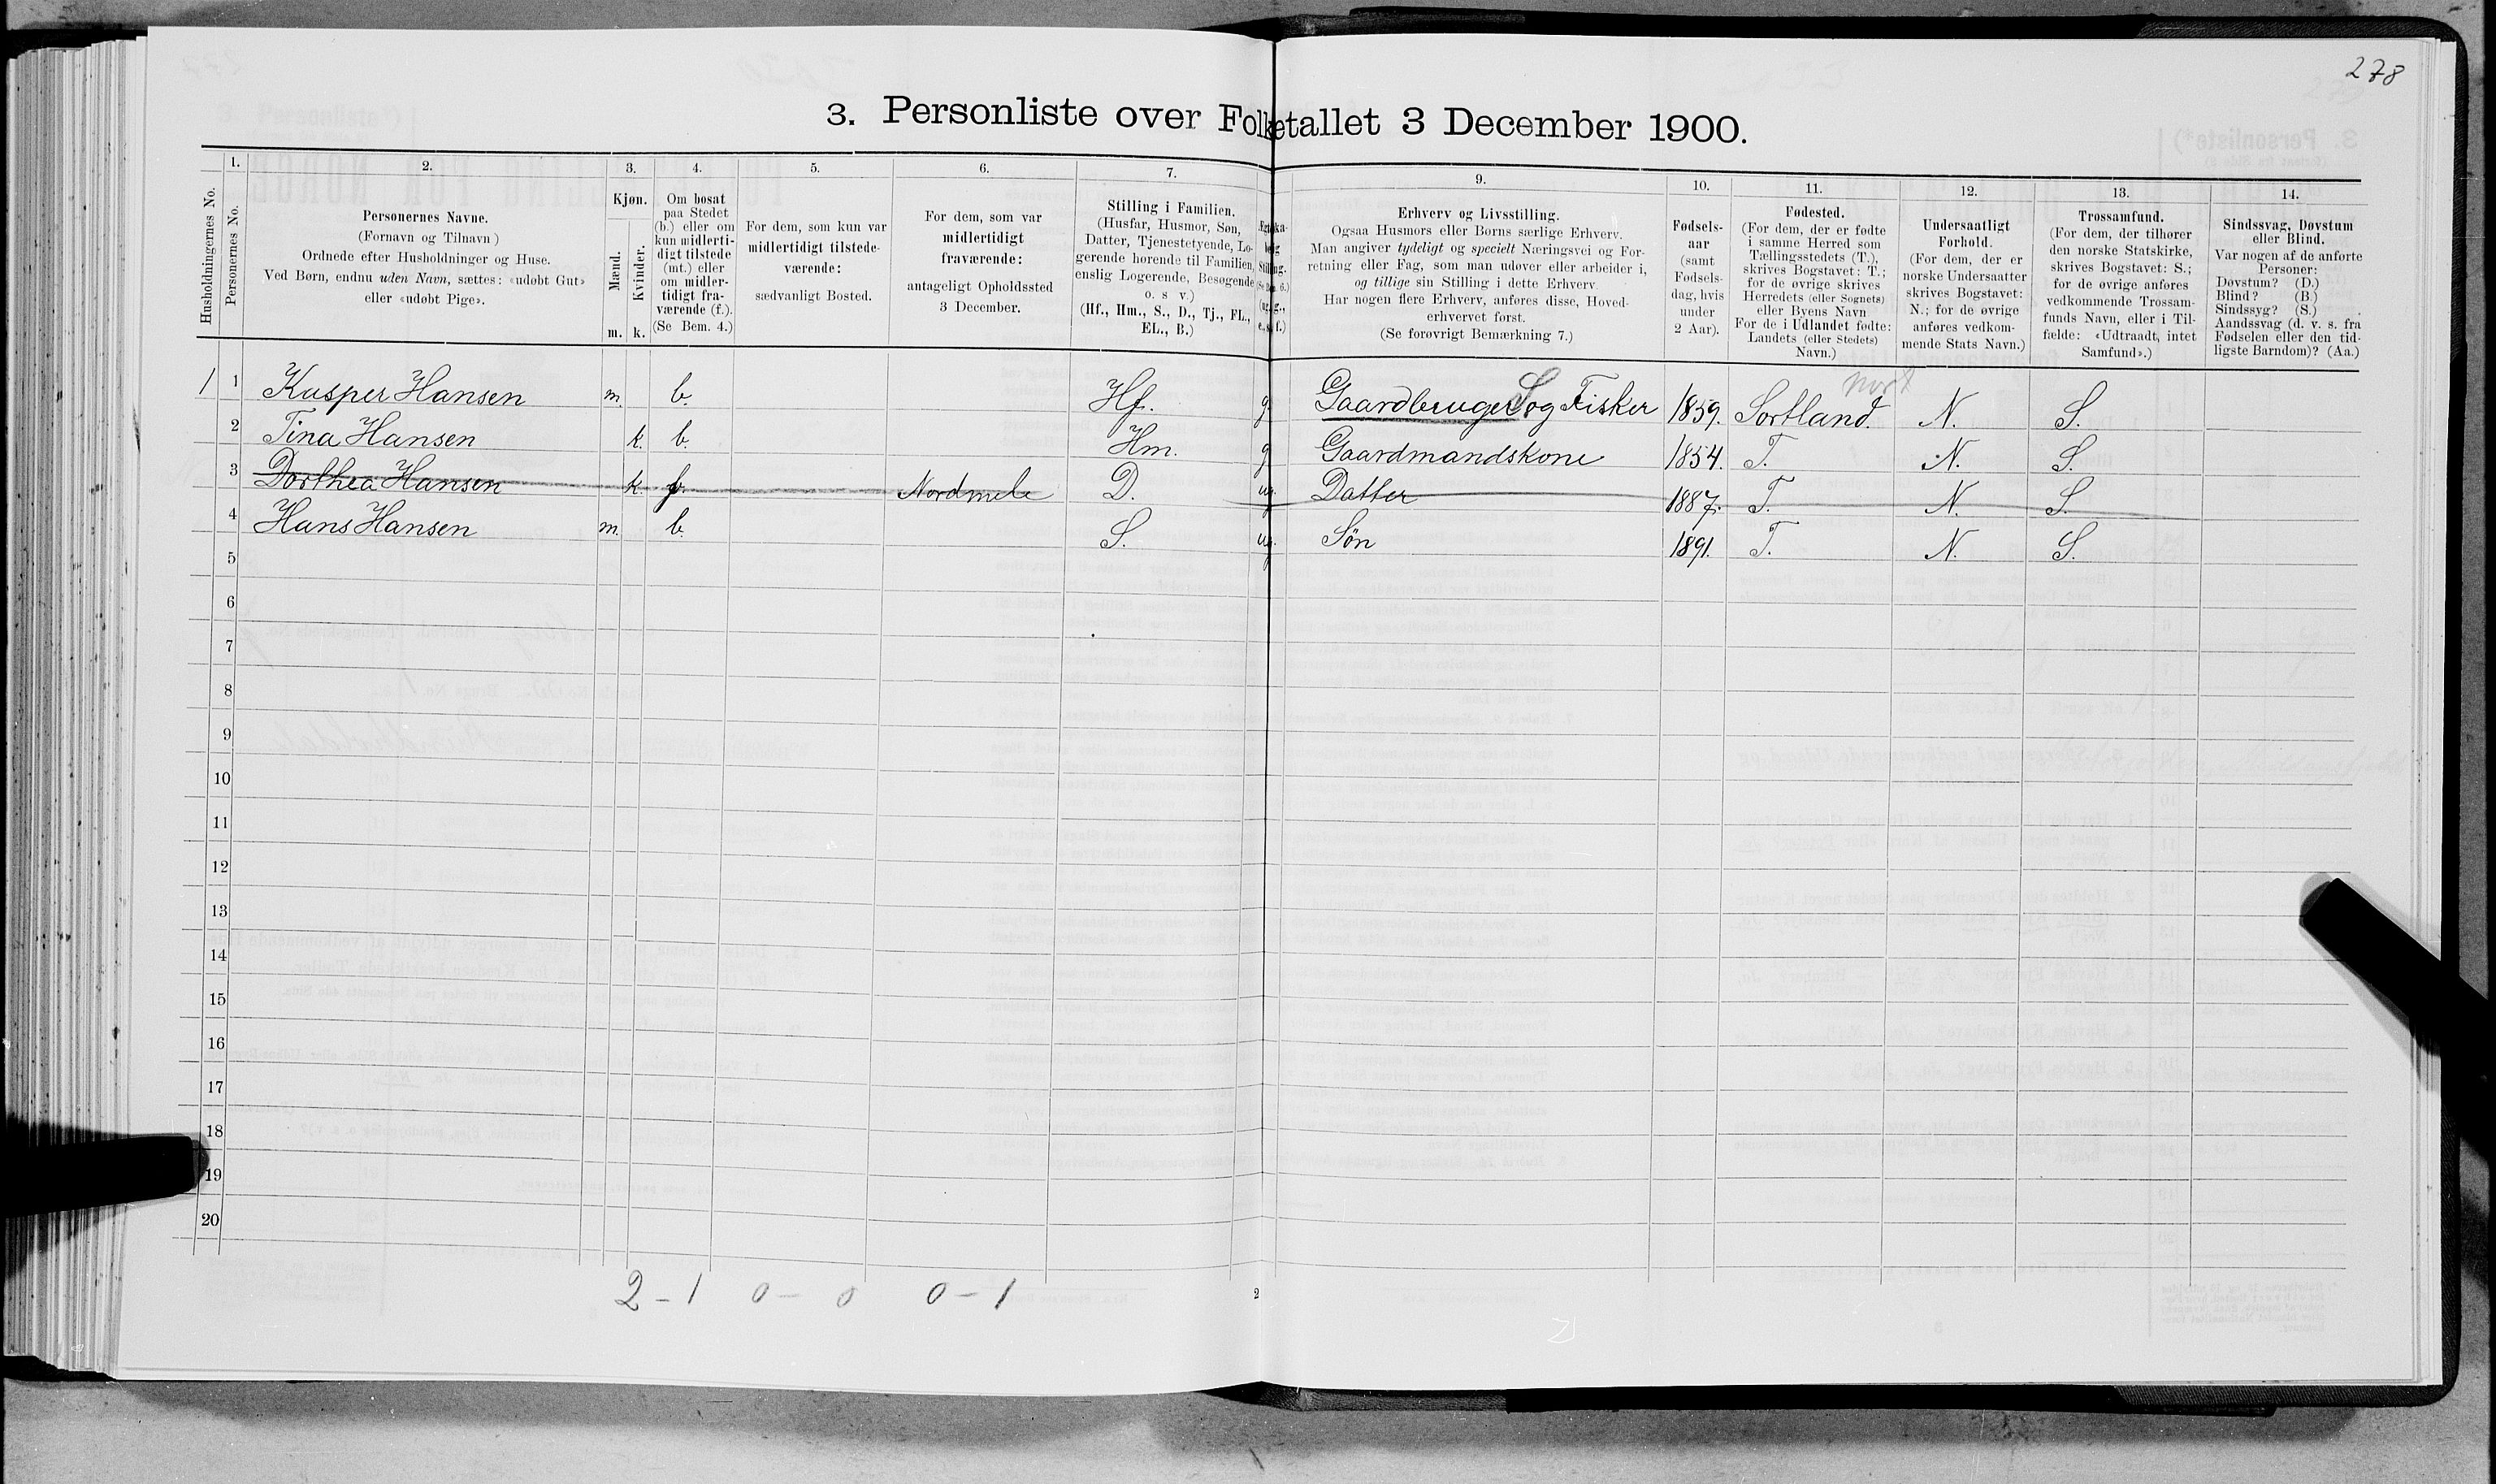 278
3. Personliste over Folketallet 3 December 1900.
Husholdningernes No.
1.
Personernes No.
2.
Personernes Navne.
(Fornavn og Tilnavn)
Ordnede efter Husholdninger og Huse.
Ved Børn, endnu uden Navn, sættes: «udøbt Gut»
eller «udøbt Pige».
3.
Kjøn.
Mænd.
Kvinder.
m. k.
4.
Om bosat
paa Stedet
(b.) eller om
kun midlerti-
digt tilstede
(mt.) eller
om midler-
tidigt fra-
værende (f.).
(Se Bem. 4.)
5.
For dem, som kun var
midlertidigt tilstede-
værende:
sædvanligt Bosted.
6.
For dem, som var
midlertidigt
fraværende:
antageligt Opholdssted
3 December.
7.
Stilling i Familien.
(Husfar, Husmor, Søn,
Datter, Tjenestetyende, Lo-
gerende hørende til Familien,
enslig Logerende, Besøgende
o. s v.)
(Hf., Hm., S., D., Tj., FL.,
EL., B.)
9.
Erhverv og Livsstilling.
Ogsaa Husmors eller Børns særlige Erhverv.
Man angiver tydeligt og specielt Næringsvei og For-
retning eller Fag, som man udøver eller arbeider i,
og tillige sin Stilling i dette Erhverv.
Har nogen flere Erhverv, anføres disse, Hoved-
erhvervet først.
(Se forøvrigt Bemærkning 7.)
10.
Fødsels-
aar
(samt
Fødsels-
dag, hvis
under
2 Aar).
11.
Fødested.
(For dem, der er fødte
i samme Herred som
Tællingsstedets (T.),
skrives Bogstavet: T.;
for de øvrige skrives
Herredets (eller Sognets)
eller Byens Navn
For de i Udlandet fødte:
Landets (eller Stedets)
Navn.)
12.
Undersaatligt
Forhold.
(For dem, der er
norske Undersaatter
skrives Bogstavet:
N.; for de øvrige
anføres vedkom-
mende Stats Navn.)
13.
Trossamfund.
(For dem, der tilhører
den norske Statskirke,
skrives Bogstavet: S.;
for de øvrige anføres
vedkommende Trossam-
funds Navn, eller i Til-
fælde: «Udtraadt, intet
Samfund».)
14.
Sindssvag, Døvstum
eller Blind.
Var nogen af de anførte
Personer:
Døvstum? (D.)
Blind? (B.)
Sindssyg? (S.)
Aandssvag (d. v. s. fra
Fødselen eller den tid-
ligste Barndom)? (Aa.)
1 1 Kasper Hansen m. b. Hf. g. Gaardbruger S og Fisker 1859. Sortland. Nord N. S.
2 Tina Hansen k. b. Hm. g Gaardmandskone 1854. T. N. S.
3 Dorthea Hansen k. f. Nordmele D. ug. Datter 1887. T. N. S.
4 Hans Hansen m. b. S. ug. Søn 1891. T. N. S.
5
6
7
8
9
10
11
12
13
14
15
16
17
18
19
20
2 - 1 0 - 0 0 - 1
2